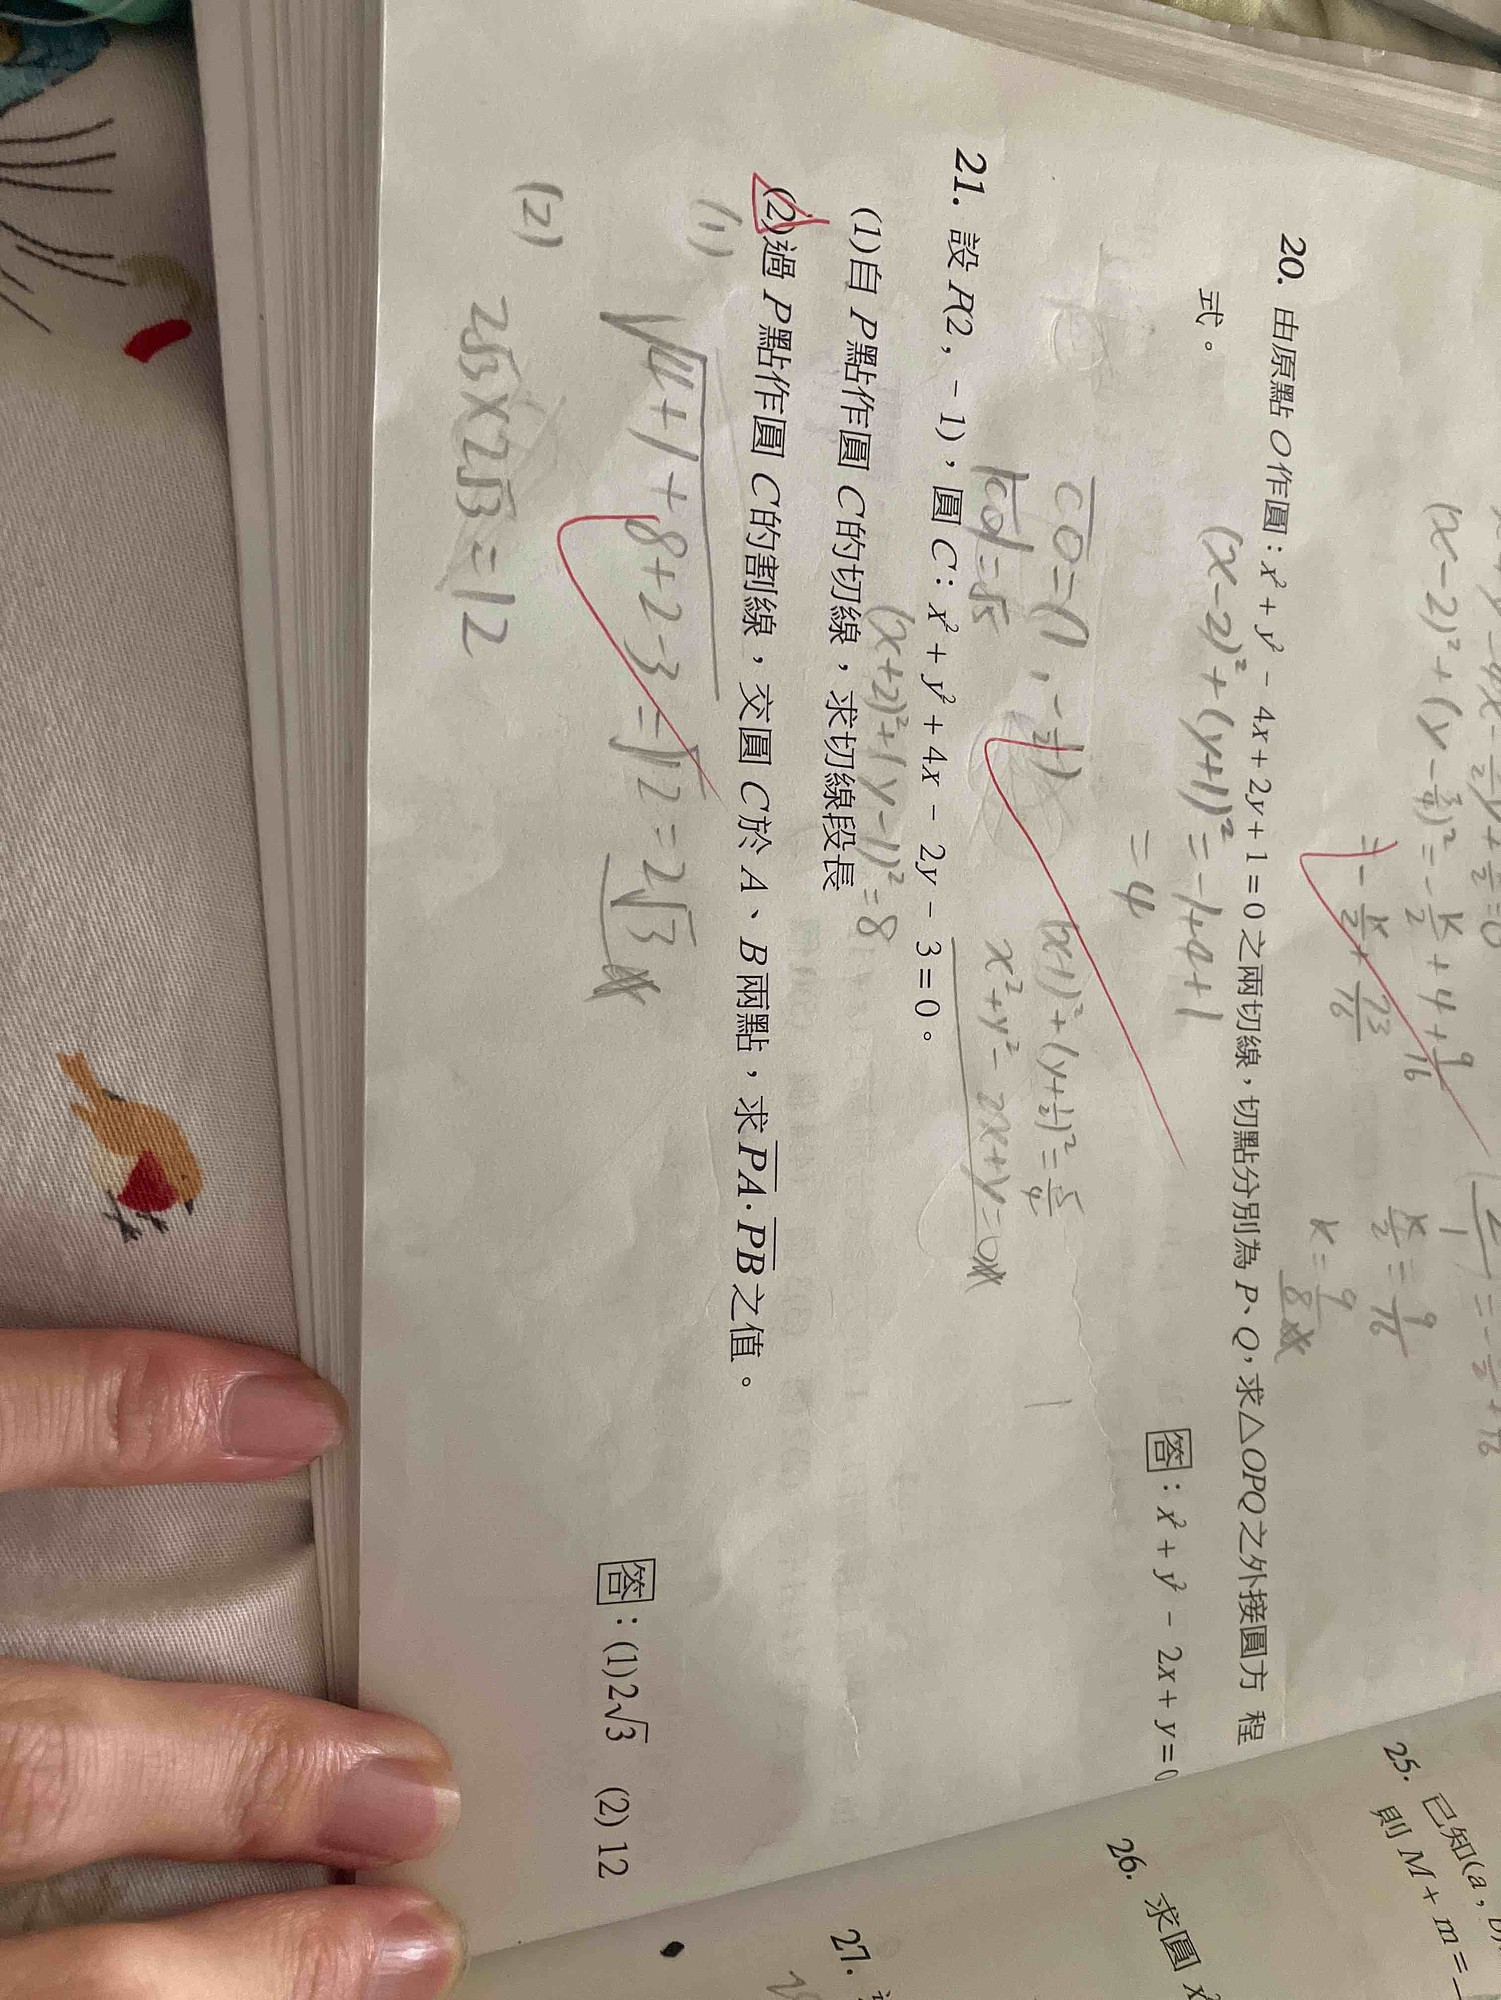 (x-2)²+(y-3/4)²=-k/2+4+9/16
=-k/2+73/16
k/2=9/16
k=9/8
20. 由原點 O 作圓:x²+y²-4x+2y+1=0 之兩切線,切點分別為 P、Q,求△OPQ 之外接圓方 程
式。
(x-2)²+(y+1)²=-1+4+1
=4
答:x²+y²-2x+y=0
CO=(1,-1/2)
(x-1)²+(y+1/2)²=5/4
x²+y²-2x+y=0
21. 設 P(2,-1),圓 C:x²+y²+4x-2y-3=0。
(x+2)²+(y-1)²=8
(1)自 P 點作圓 C 的切線,求切線段長
(2)過 P 點作圓 C 的割線,交圓 C 於 A、B 兩點,求 PA·PB 之值。
(1) √4+1+8+2-3=√12=2√3
答:(1)2√3 (2)12
(2) 2√3×2√3=12
25. 已知(a,
則 M+m=
26. 求圓 x²
27.